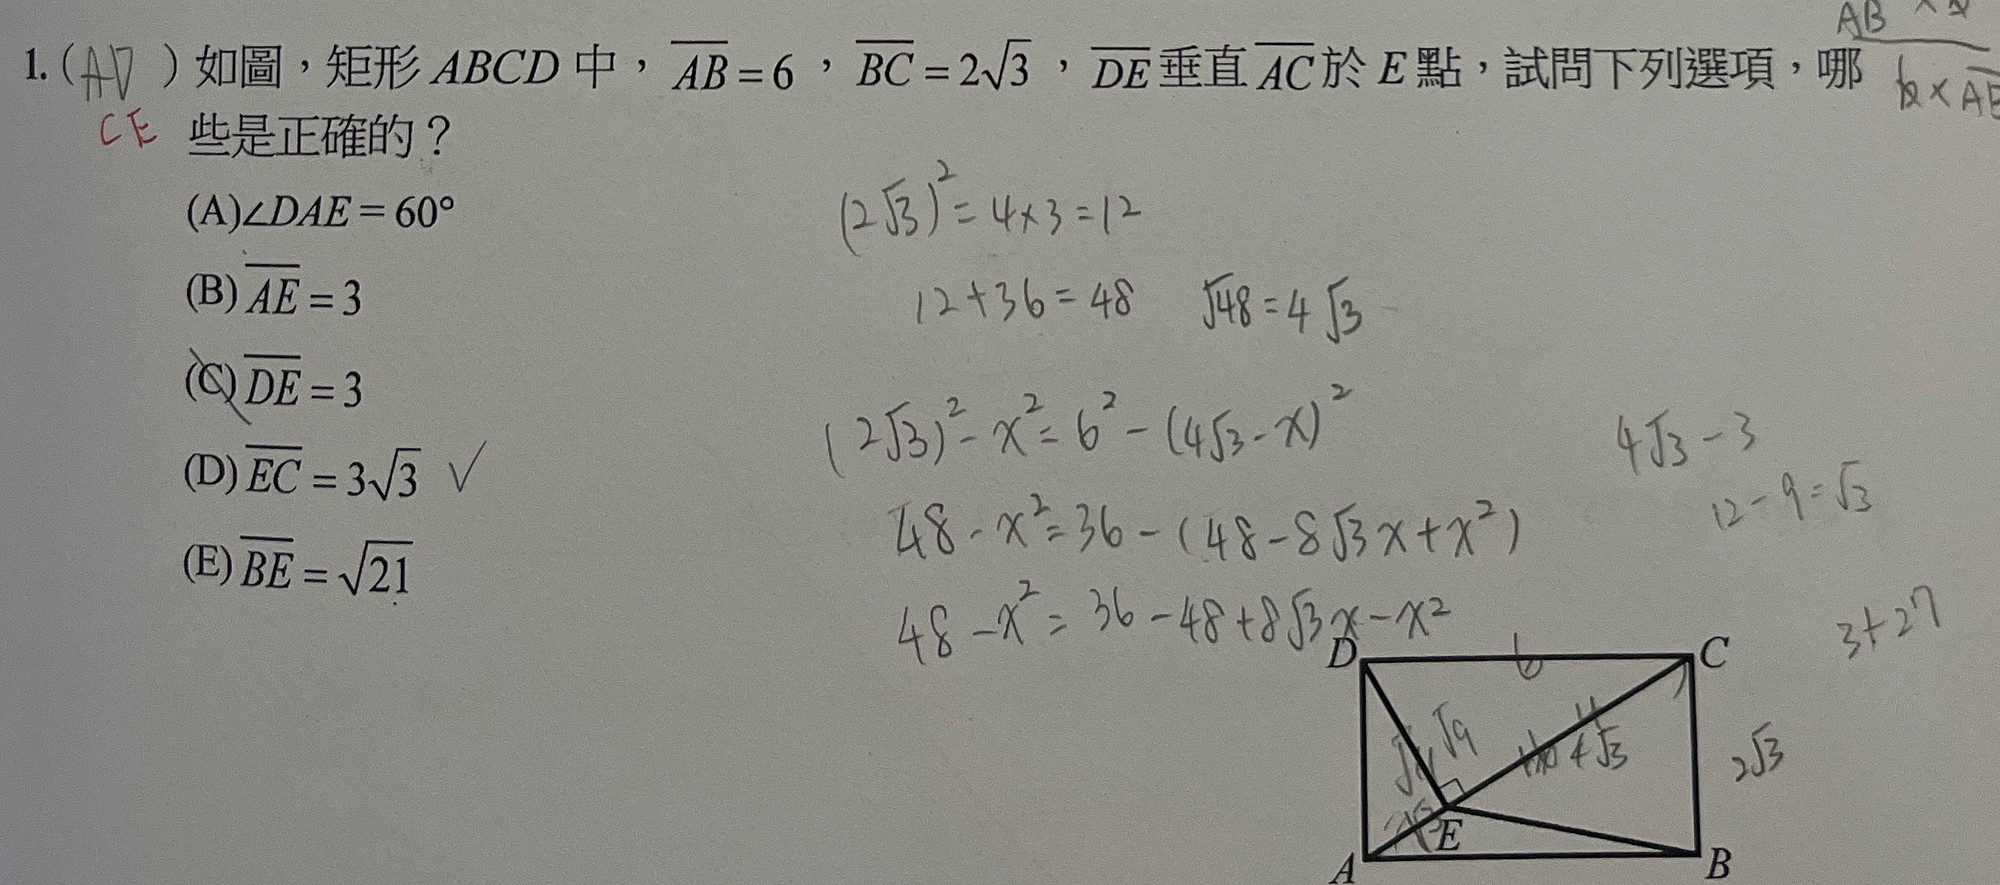 1. (AD) 如圖，矩形 ABCD 中，AB = 6，BC = 2√3，DE 垂直 AC 於 E 點，試問下列選項，哪
CE 些是正確的？
(A)∠DAE = 60°
(B) AE = 3
(C) DE = 3
(D) EC = 3√3 ✓
(E) BE = √21
AB
(2√3)² = 4×3 = 12
12+36 = 48 √48 = 4√3
(2√3)² - x² = 6² - (4√3 - x)²
48 - x² = 36 - (48 - 8√3x + x²)
48 - x² = 36 - 48 + 8√3x - x²
4√3 - 3
12 - 9 = √3
3+27
D 6 C
√9 4√3 2√3
E
A B